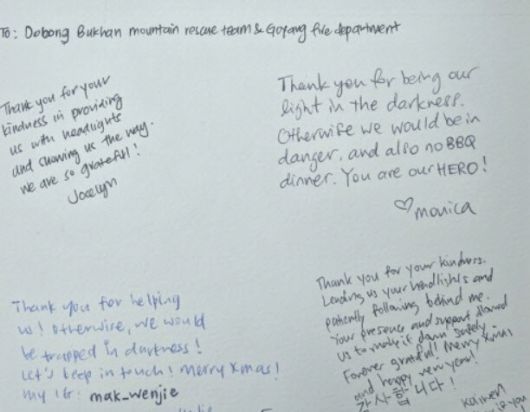 To: Dobong Bukhan mountain rescue team & Goyang fire department
Thank you for your
kindness in providing
us with headlights
and showing us the way.
we are so grateful!
Jocelyn
Thank you for being our
light in the darkness.
Otherwise we would be in
danger, and also no BBQ
dinner. You are our HERO!
♡ monica
Thank you for helping
us! Otherwise, we would
be trapped in darkness!
Let's keep in touch! Merry Xmas!
my IG: mak_wenjie
Thank you for your kindness.
Lending us your headlights and
patiently following behind me.
Your presence and support allowed
us to make it down safely.
Forever grateful! Merry Xmas
and happy new year!
감사합니다!